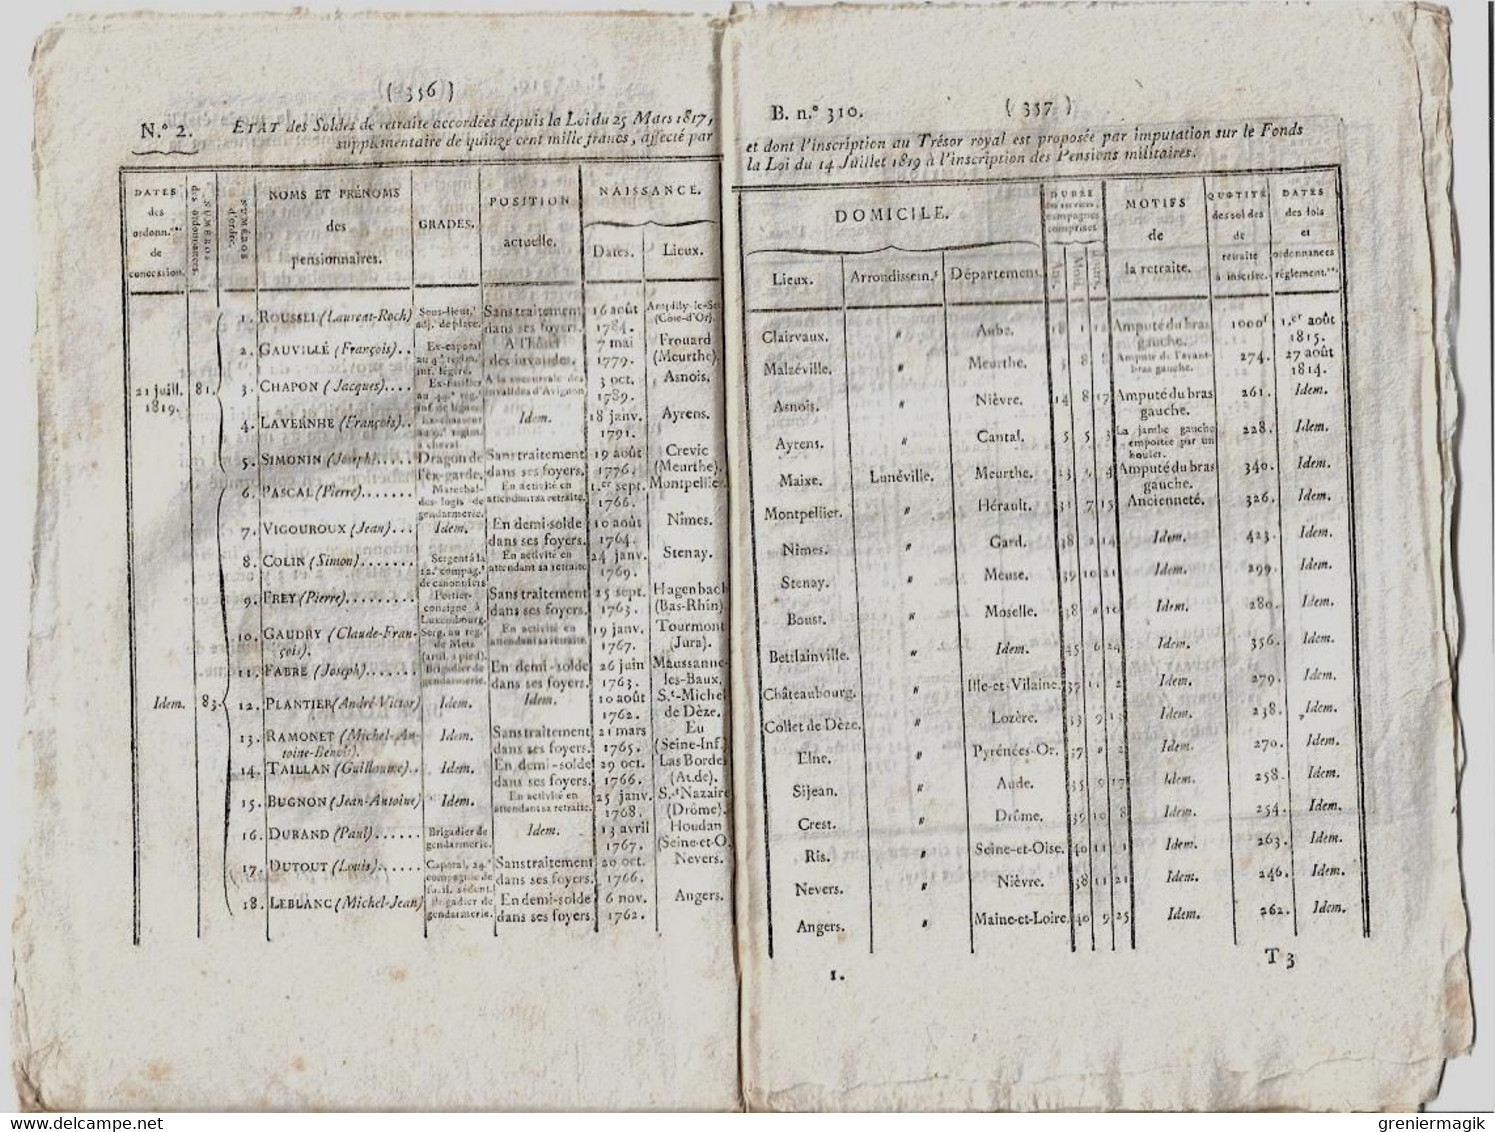 ( 356 )
N.º 2. ETAT des Soldes de retraite accordées depuis la Loi du 25 Mars 1817,
supplémentaire de quinze cent mille francs, affecté par
DATES des ordonn.ces de concession. NUMÉROS des ordonnances. NUMÉROS d'ordre. NOMS ET PRÉNOMS des pensionnaires. GRADES. POSITION actuelle. NAISSANCE. Dates. Lieux.
1. ROUSSEL (Laurent-Roch) Sous-lieut.t adj. de place. Sans traitement dans ses foyers. 16 août 1784. (Côte-d'Or).
2. GAUVILLÉ (François).. Ex-caporal inf. légère. A l'hôtel des invalides. 7 mai 1779. Frouard (Meurthe).
21 juill. 1819. 81. 3. CHAPON (Jacques).... Ex-fusilier A la succursale des invalides d'Avignon 3 oct. 1789. Asnois.
4. LAVERNHE (François).. à cheval. Idem. 18 janv. 1791. Ayrens.
5. SIMONIN (Joseph)..... Dragon de l'ex-garde. Sans traitement dans ses foyers. 19 août 1776. Crevic (Meurthe).
6. PASCAL (Pierre)....... Maréchal-des-logis de gendarmerie. En activité en attendant sa retraite. 1.er sept. 1766. Montpellier.
7. VIGOUROUX (Jean)... Idem. En demi-solde dans ses foyers. 10 août 1764. Nîmes.
8. COLIN (Simon)....... Sergent à la 12.e compag.e de canonniers En activité en attendant sa retraite 24 janv. 1769. Stenay.
9. FREY (Pierre)......... Portier-consigne à Luxembourg. Sans traitement dans ses foyers. 25 sept. 1763. Hagenbach (Bas-Rhin).
10. GAUDRY (Claude-François). Serg. au rég. de Metz (artil. à pied). En activité en attendant sa retraite. 19 janv. 1767. Tourmont (Jura).
11. FABRE (Joseph)...... Brigadier de gendarmerie. En demi-solde dans ses foyers. 26 juin 1763. Maussanne-les-Baux.
Idem. 83. 12. PLANTIER (André-Victor) Idem. Idem. 10 août 1762. S.t-Michel de Dèze.
13. RAMONET (Michel-Antoine-Benoît). Idem. Sans traitement dans ses foyers. 21 mars 1765. Eu (Seine-Inf.)
14. TAILLAN (Guillaume).. Idem. En demi-solde dans ses foyers. 29 oct. 1766. Las Bordes (Aude).
15. BUGNON (Jean-Antoine) Idem. En activité en attendant sa retraite. 25 janv. 1768. S.t Nazaire (Drôme).
16. DURAND (Paul)...... Brigadier de gendarmerie. Idem. 13 avril 1767. Houdan (Seine-et-O.
17. DUTOUT (Louis)..... Caporal, 24.e compagnie de fusil. sédent. Sans traitement dans ses foyers. 20 oct. 1766. Nevers.
18. LEBLANC (Michel-Jean) Brigadier de gendarmerie. En demi-solde dans ses foyers. 6 nov. 1762. Angers.
B. n.º 310. ( 357 )
et dont l'inscription au Trésor royal est proposée par imputation sur le Fonds
la Loi du 14 Juillet 1819 à l'inscription des Pensions militaires.
DOMICILE. Lieux. Arrondissem.t Département. DURÉE des services, campagnes comprises. Ans. Mois. Jours. MOTIFS de la retraite. QUOTITÉ des soldes de retraite à inscrire. DATES des lois et ordonnances réglement.res
Clairvaux. " Aube. 18 1 Amputé du bras gauche. 1000f 1.er août 1815.
Malzéville. " Meurthe. 8 8 Amputé de l'avant-bras gauche. 274. 27 août 1814.
Asnois. " Nièvre. 14 8 17 Amputé du bras gauche. 261. Idem.
Ayrens. " Cantal. 5 5 3 La jambe gauche emportée par un boulet. 228. Idem.
Maixe. Lunéville. Meurthe. 23 4 Amputé du bras gauche. 340. Idem.
Montpellier. " Hérault. 31 7 15 Ancienneté. 326. Idem.
Nîmes. " Gard. 38 2 14 Idem. 423. Idem.
Stenay. " Meuse. 39 10 21 Idem. 299. Idem.
Boust. " Moselle. 38 " 10 Idem. 280. Idem.
Bettlainville. " Idem. 45 6 24 Idem. 356. Idem.
Châteaubourg. " Ille-et-Vilaine. 37 11 2 Idem. 279. Idem.
Collet de Dèze. " Lozère. 33 9 13 Idem. 238. Idem.
Elne. " Pyrénées-Or. 37 " 2 Idem. 270. Idem.
Sijean. " Aude. 35 9 17 Idem. 258. Idem.
Crest. " Drôme. 39 10 8 Idem. 254. Idem.
Ris. " Seine-et-Oise. 40 11 1 Idem. 263. Idem.
Nevers. " Nièvre. 38 11 21 Idem. 246. Idem.
Angers. " Maine-et-Loire. 40 9 25 Idem. 262. Idem.
1. T 3
www.delcampe.net
greniermagik